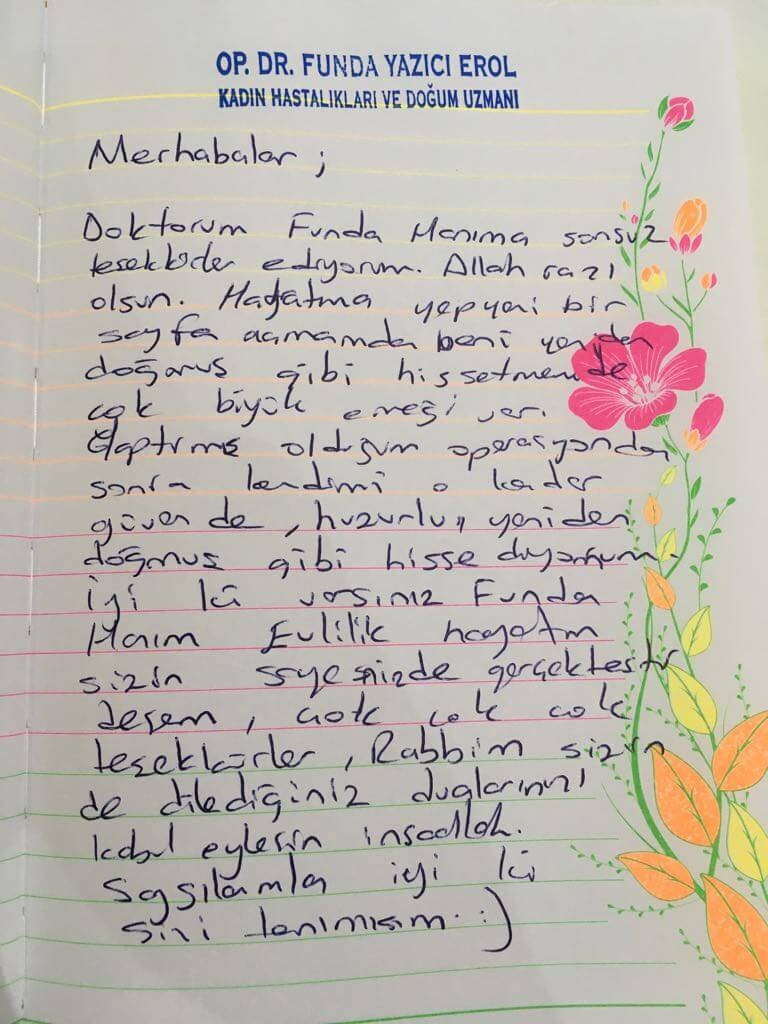 OP. DR. FUNDA YAZICI EROL
KADIN HASTALIKLARI VE DOĞUM UZMANI
Merhabalar ;
Doktorum Funda Hanıma sonsuz
teşekkürler ediyorum. Allah razı
olsun. Hayatıma yepyeni bir
sayfa açmamda beni yeniden
doğmuş gibi hissetmemde
çok büyük emeği var.
Yaptırmış olduğum operasyondan
sonra kendimi o kadar
güvende, huzurlu, yeniden
doğmuş gibi hissediyorum.
İyi ki varsınız Funda
Hanım Evlilik hayatım
sizin sayenizde gerçekleşti
desem, çok çok çok
teşekkürler, Rabbim sizin
de dilediğiniz dualarınızı
kabul eylesin inşaallah.
Saygılarımla iyi ki
sizi tanımışım. :)